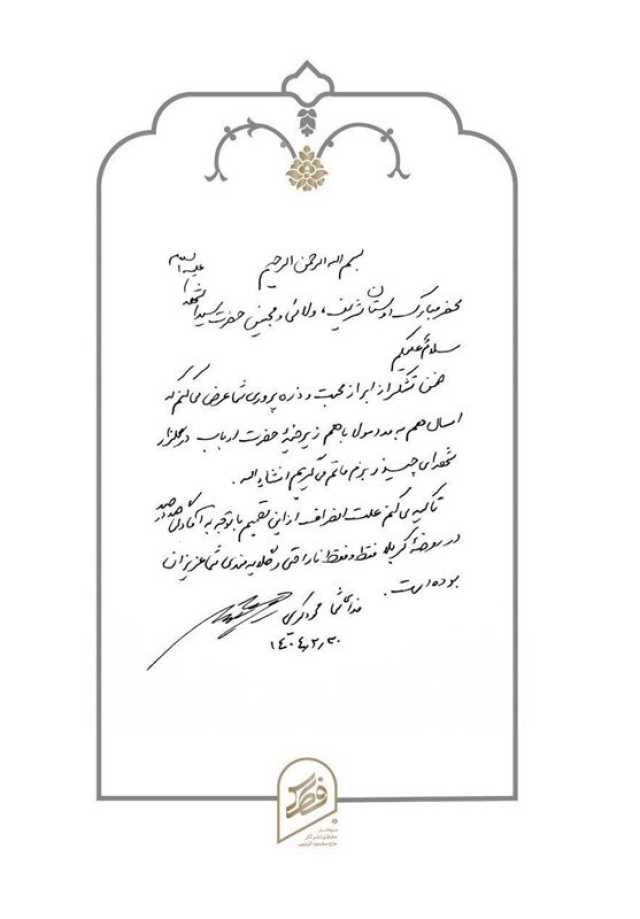 بسم اله الرحمن الرحیم
محضر مبارک دوستان شریف، ولائی و محبین حضرت سیدالشهدا علیه السلام
سلام علیکم
ضمن تشکر از ابراز محبت و ذره پروری شما عرض می کنم که
امسال هم به مدد مولا با هم زیر خیمهٔ حضرت ارباب در گلزار
شهدای چیذر بزم ماتم می گیریم انشاءاله.
تاکید می کنم علت انصراف از این تصمیم با توجه به آمادگی صد در صد
در روضهٔ کربلا فقط و فقط ناراحتی و گلایه مندی شما عزیزان
بوده است.
فدای شما محمود کریمی
۱۴۰۴٫۲٫۳۰